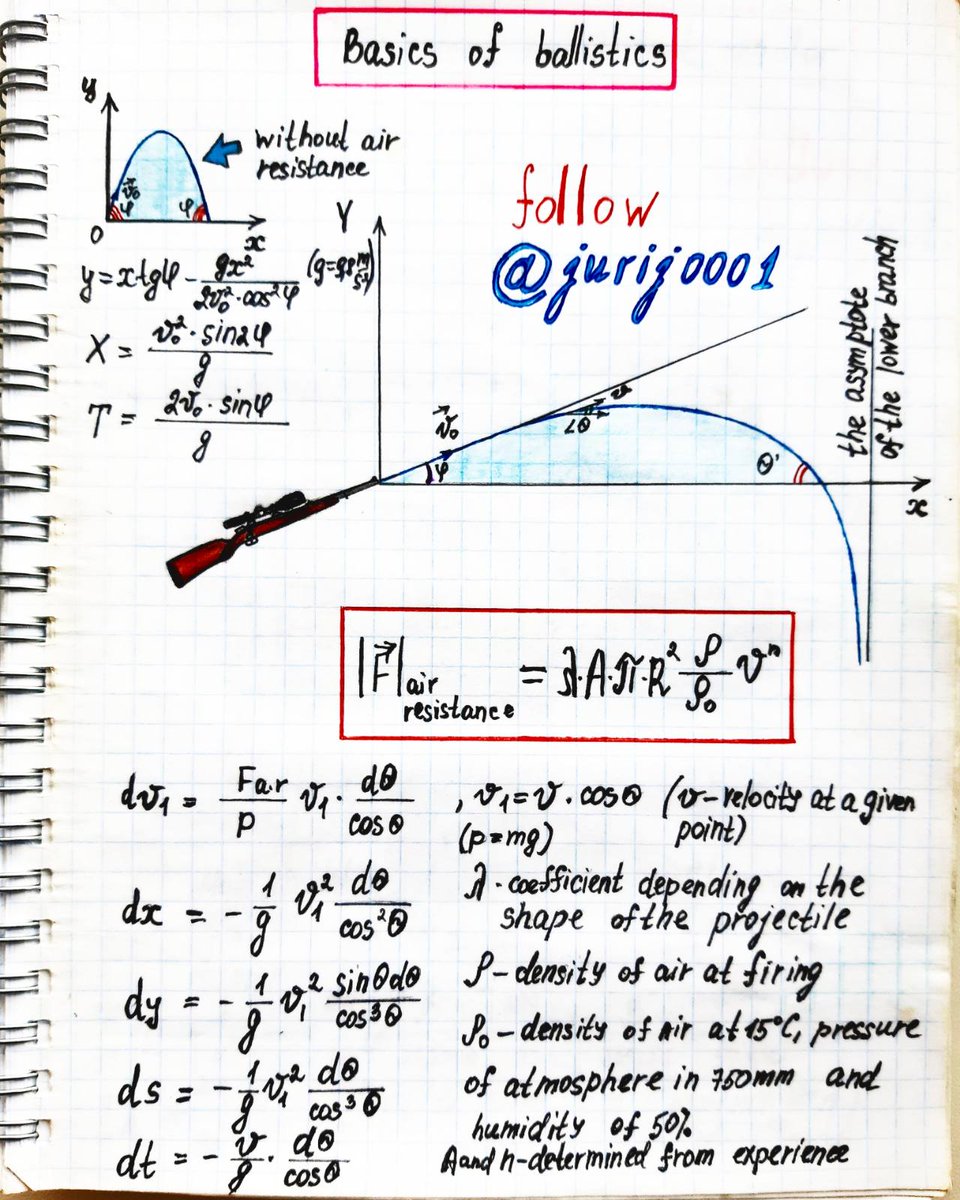 Basics of ballistics
y
without air
resistance
v⃗₀
φ
φ
O
x
y = x tgφ - gx²/2v₀²·cos²φ (g=9,8 m/s²)
X = v₀²·sin2φ/g
T = 2v₀·sinφ/g
follow
@jurij0001
Y
the asymptote
of the lower branch
v⃗₀
φ
∠θ
θ'
x
|F⃗| air resistance = λ·A·π·R² ρ/ρ₀ vⁿ
dv₁ = Fa.r/p v₁· dθ/cosθ , v₁=v·cosθ (v-velocity at a given
(p=mg) point)
dx = - 1/g v₁² dθ/cos²θ
λ·coefficient depending on the
shape of the projectile
dy = - 1/g v₁² sinθdθ/cos³θ
ρ-density of air at firing
ρ₀-density of air at 15°C, pressure
ds = - 1/g v₁² dθ/cos³θ
of atmosphere in 750mm and
humidity of 50%
dt = - v/g · dθ/cosθ
A and n-determined from experience